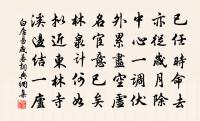 已任時命去
亦從歲月除
中心一調伏
外累盡空虛
名宦意已矣
林泉計何如
擬近東林寺
溪邊結一廬
白居易歲暮詞典網集